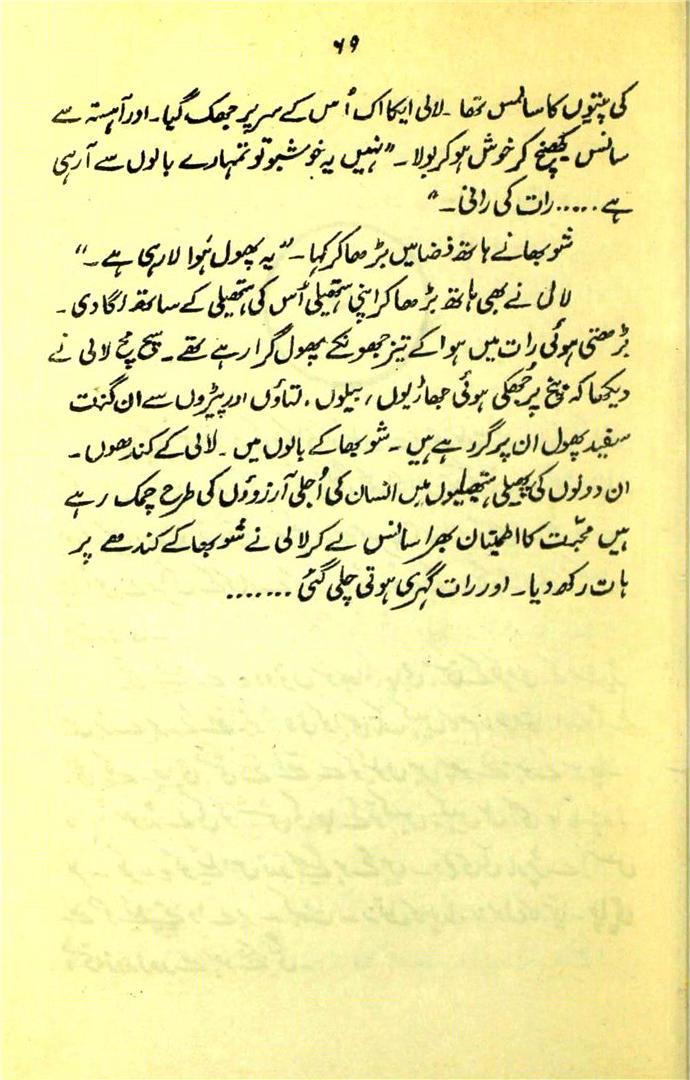 ۶۹
کی پتیوں کا سا لمس تھا۔ لالی ایکا اک اُس کے سر پر جھک گیا۔ اور آہستہ سے
سانس کھینچ کر خوش ہو کر بولا۔ "نہیں یہ خوشبو تو تمہارے بالوں سے آ رہی
ہے ..... رات کی رانی۔"
شوبھا نے ہاتھ فضا میں بڑھا کر کہا۔ "یہ پھول ہَوا لا رہی ہے۔"
لالی نے بھی ہاتھ بڑھا کر اپنی ہتھیلی اُس کی ہتھیلی کے ساتھ لگا دی۔
بڑھتی ہوئی رات میں ہوا کے تیز جھونکے پھول گرا رہے تھے۔ سچ مچ لالی نے
دیکھا کہ بنچ پر جُھکی ہوئی جھاڑیوں، بیلوں، لتاؤں اور پیڑوں سے ان گنت
سفید پھول ان پر گر رہے ہیں۔ شوبھا کے بالوں میں۔ لالی کے کندھوں۔
ان دونوں کی پھیلی ہتھیلیوں میں انسان کی اُجلی آرزوؤں کی طرح چمک رہے
ہیں محبّت کا اطمینان بھرا سانس لے کر لالی نے شوبھا کے کندھے پر
ہات رکھ دیا۔ اور رات گہری ہوتی چلی گئی .......